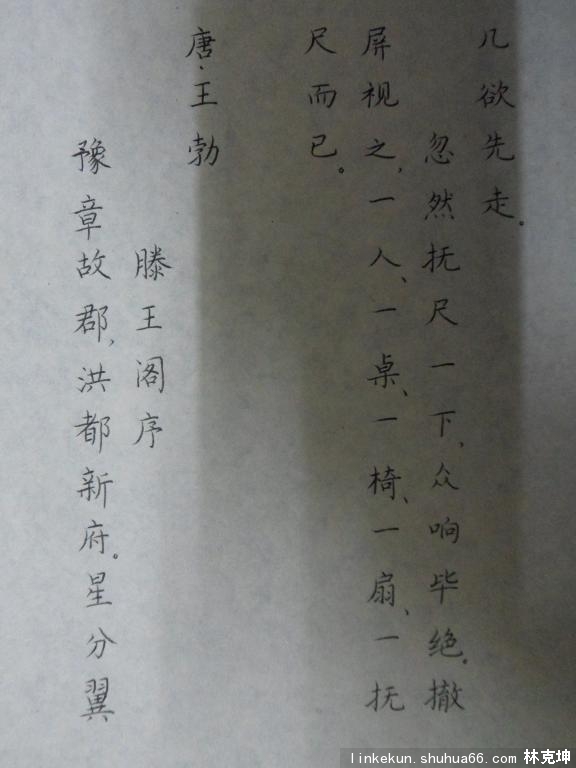 几欲先走。
忽然抚尺一下，众响毕绝。撤
屏视之，一人、一桌、一椅、一扇、一抚
尺而已。
唐·王勃
滕王阁序
豫章故郡，洪都新府。星分翼
linkekun.shuhua66.com 林克坤